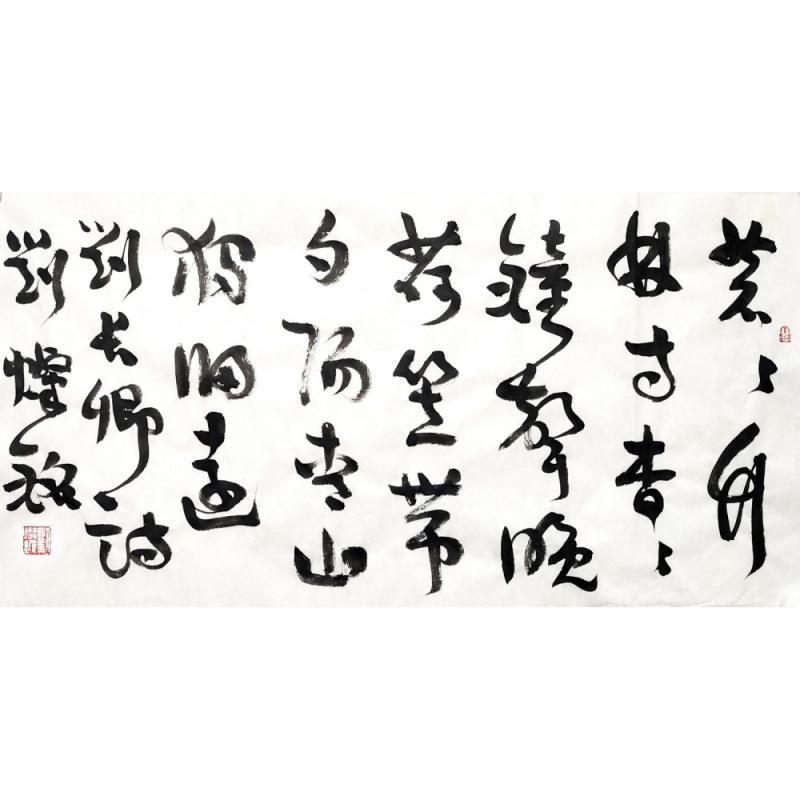 蒼〻竹
林寺杳〻
鐘聲晚
荷笠帶
夕陽青山
獨歸遠
劉長卿詩
劉燦